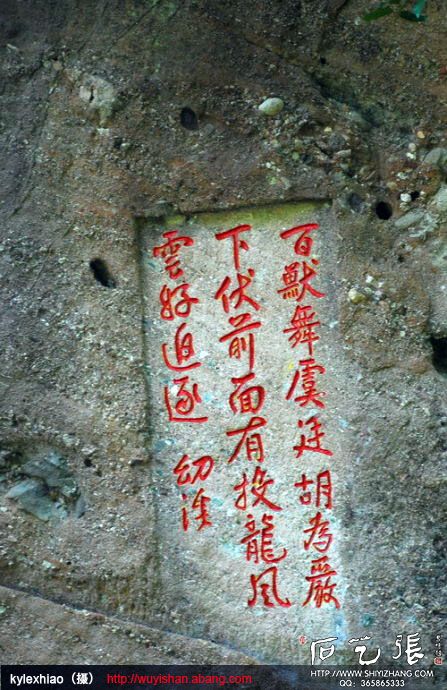 百獸舞虞廷 胡為巖
下伏前面有投龍風
雲好追逐 幼淮
WWW.SHIYIZHANG.COM
QQ：365865333
kylexhiao（攝） http://wuyishan.abang.com